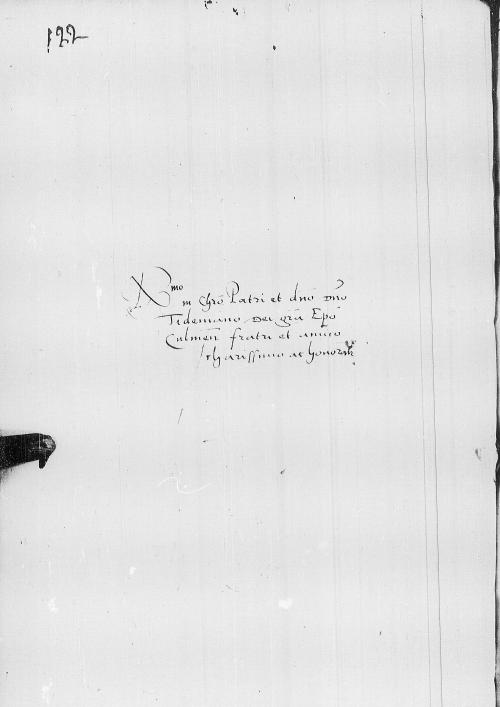 122
Rmo
in Chro Patri et dno Dno
Tidemano Dei gra Epo
Culmen fratri et amico
charissimo ac honoran